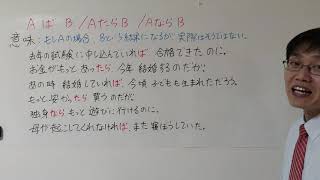 Aば B /AたらB /AならB
意味:もしAの場合、Bという結果になるが、実際はそうではない。
去年の試験に申し込んでいれば、合格できたのに。
お金がもっとあったら、今年結婚するのだが。
あの時結婚していれば、今頃子どもも生まれただろう。
もっと安かったら買うのだが。
独身ならもっと遊びに行けるのに。
母が起こしてくれなければ、まだ寝ぼうしていた。